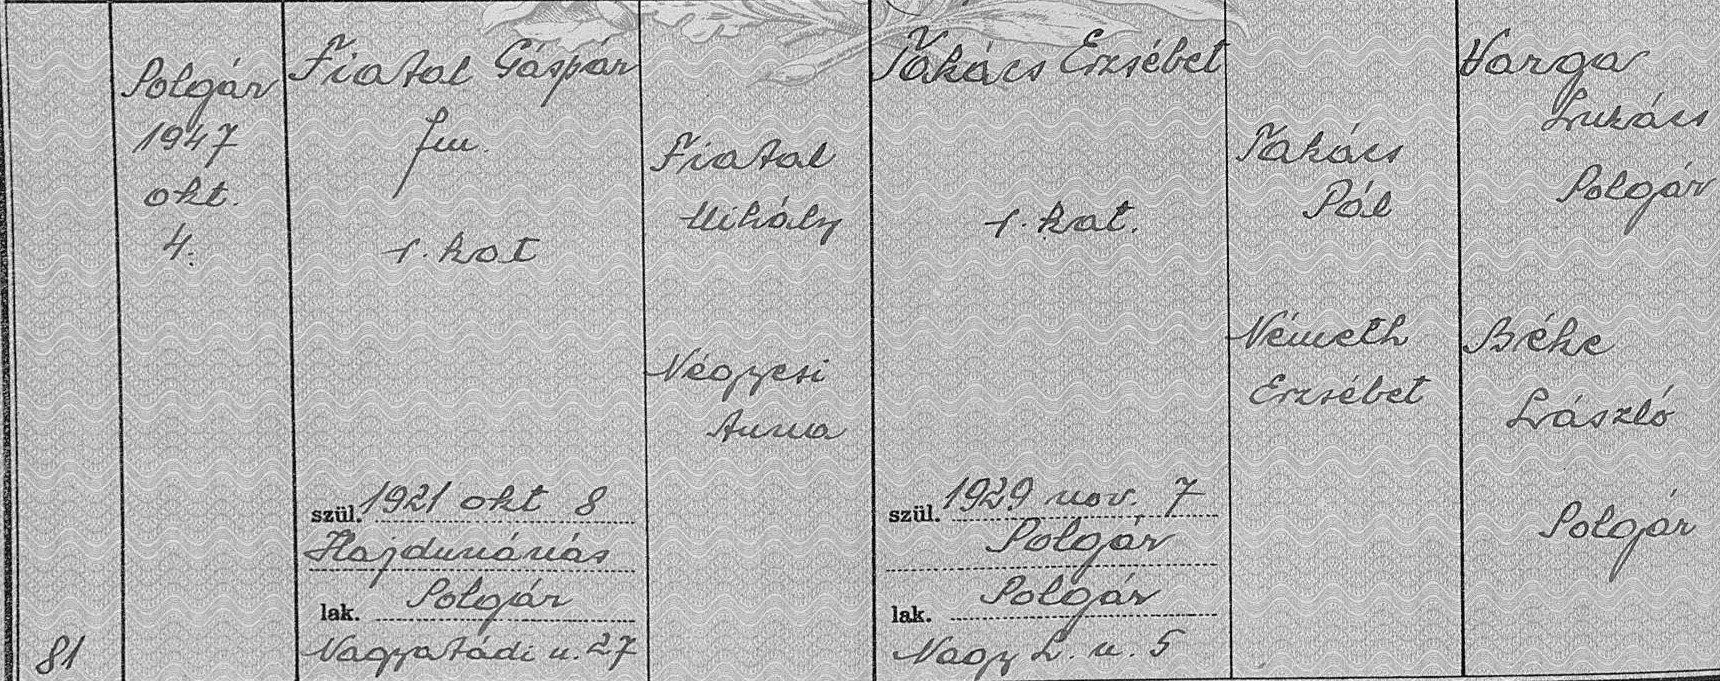 81
Polgár
1947
okt.
4.
Fiatal Gáspár
fm.
r. kat
szül. 1921 okt 8
Hajdunánás
lak. Polgár
Nagyatádi u. 27
Fiatal
Mihály
Négyesi
Anna
Takács Erzsébet
r. kat.
szül. 1929 nov. 7
Polgár
lak. Polgár
Nagy L. u. 5
Takács
Pál
Németh
Erzsébet
Varga
Lukács
Polgár
Béke
László
Polgár